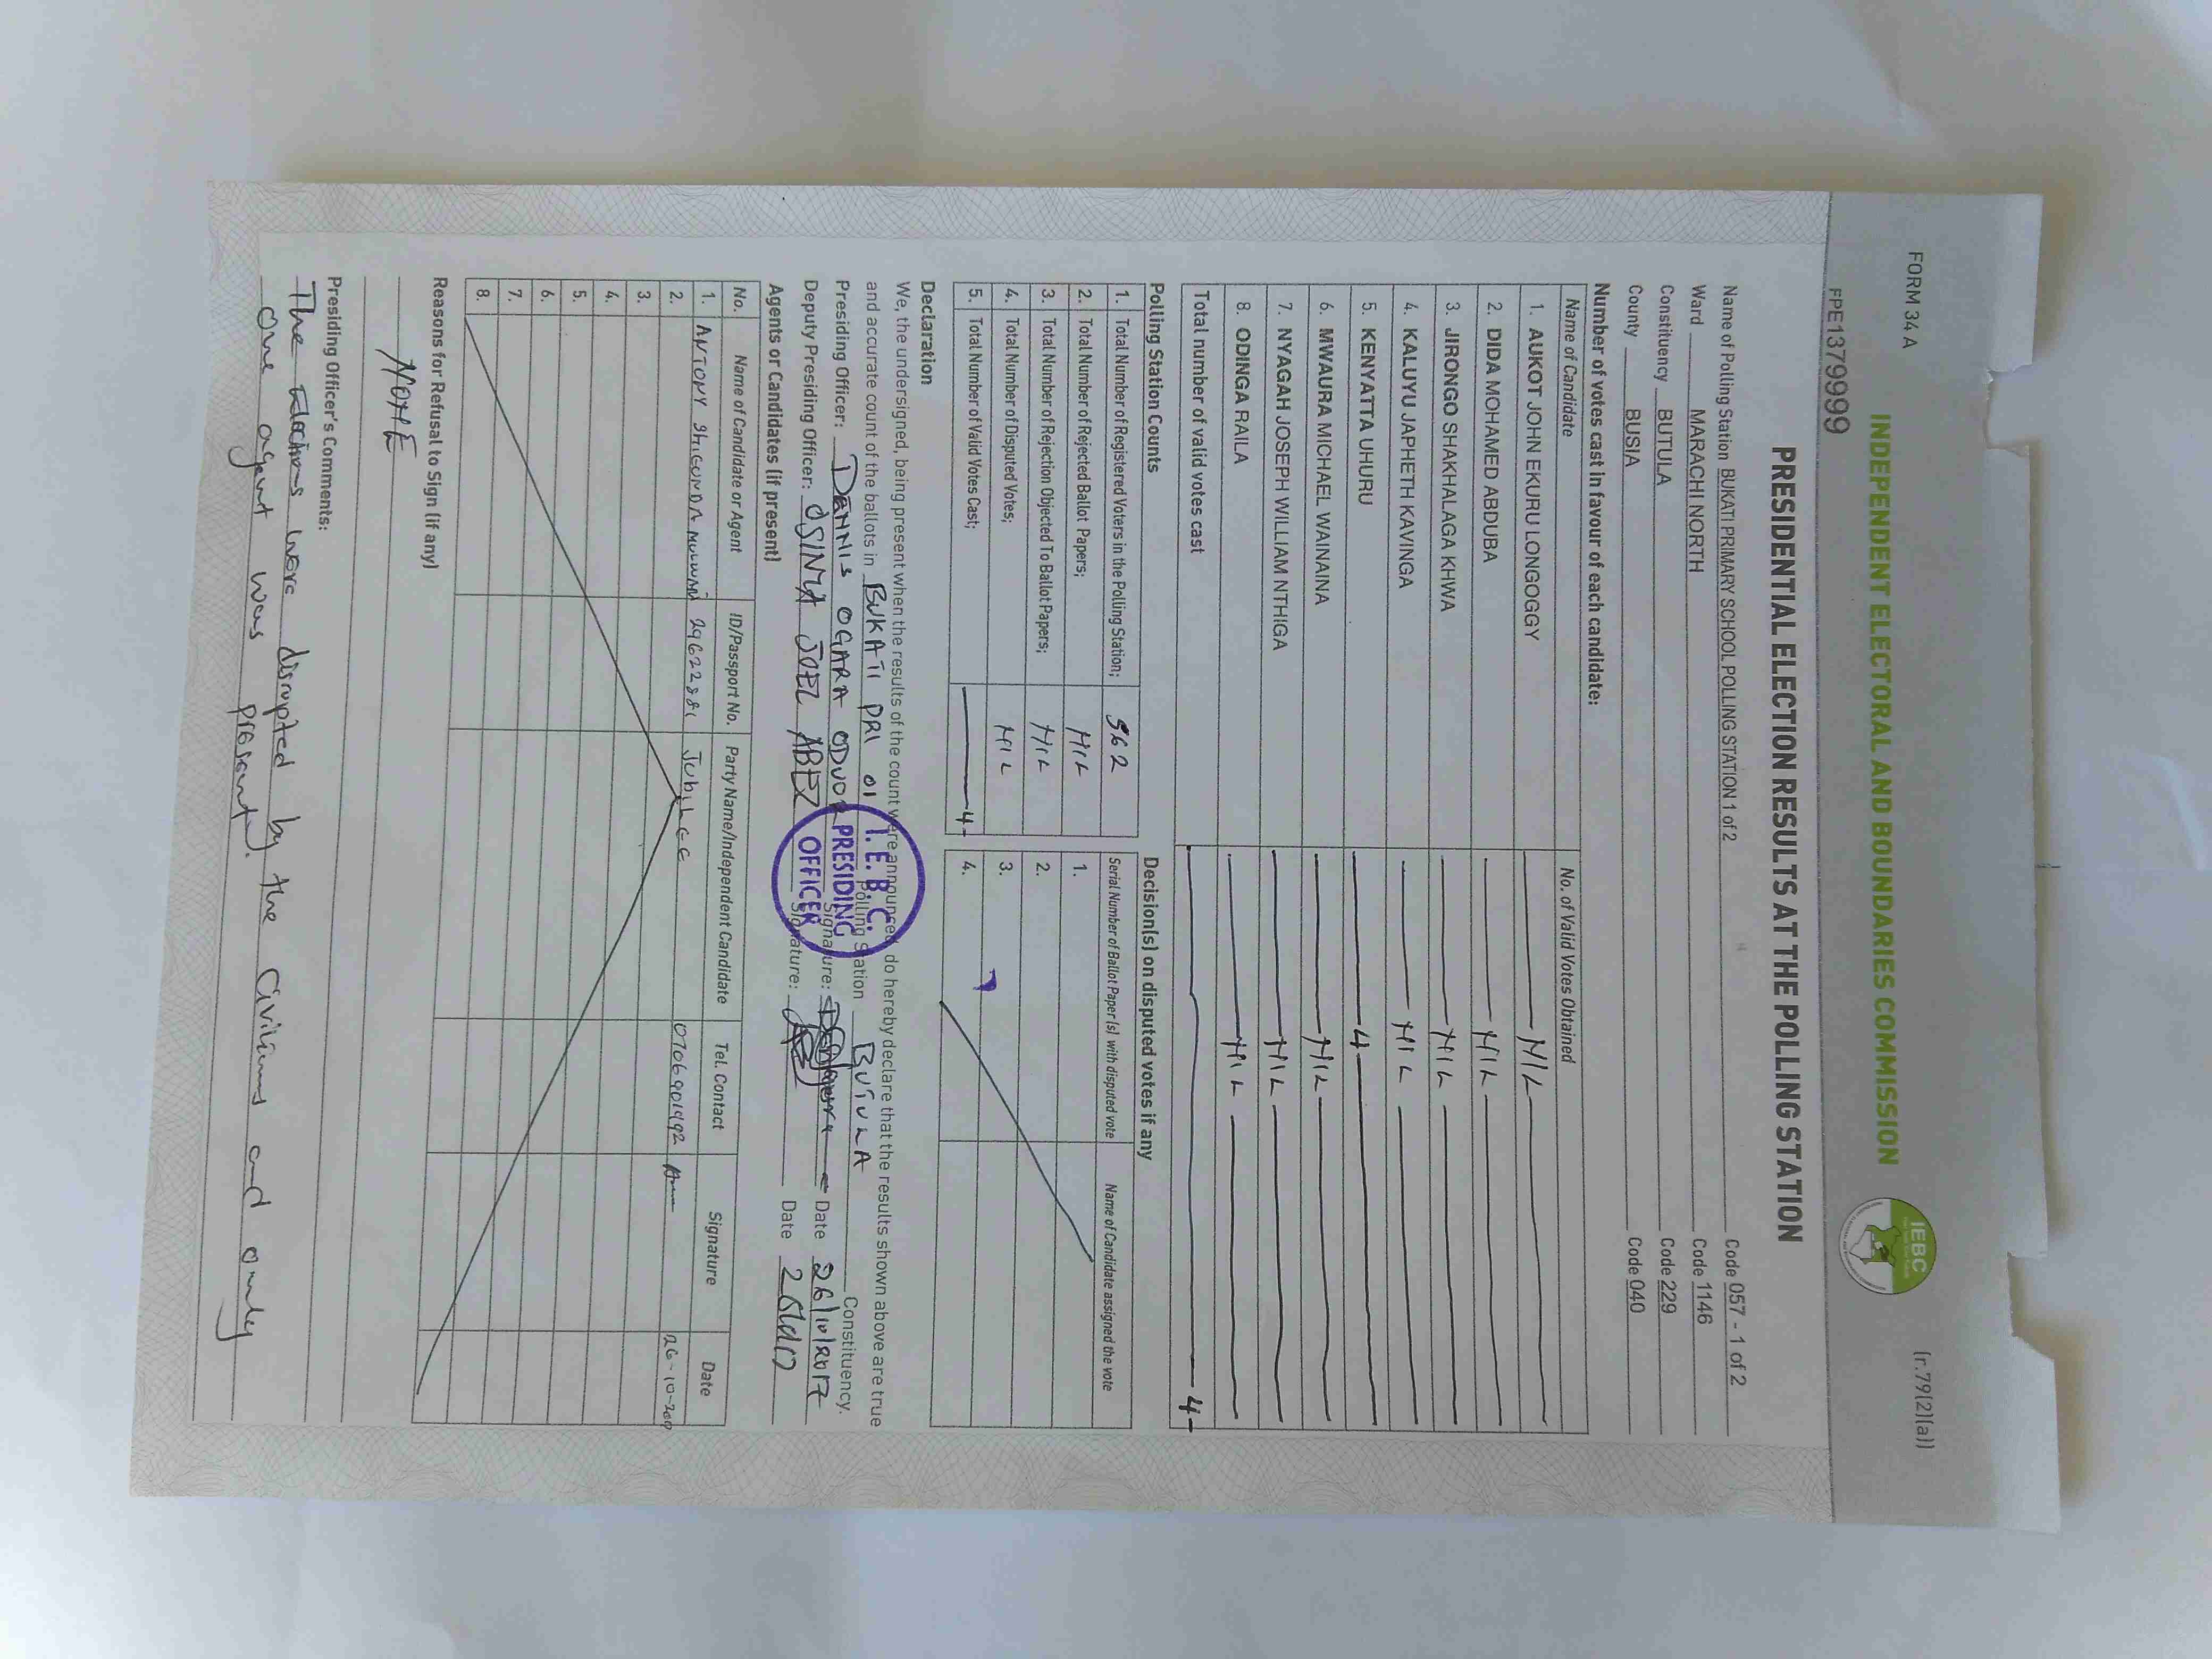 FORM 34 A
(r.79(2)(a))
INDEPENDENT ELECTORAL AND BOUNDARIES COMMISSION
IEBC
FPE1379999
PRESIDENTIAL ELECTION RESULTS AT THE POLLING STATION
Name of Polling Station BUKATI PRIMARY SCHOOL POLLING STATION 1 of 2 Code 057 - 1 of 2
Ward MARACHI NORTH Code 1146
Constituency BUTULA Code 229
County BUSIA Code 040
Number of votes cast in favour of each candidate:
Name of Candidate No. of Valid Votes Obtained
1. AUKOT JOHN EKURU LONGOGGY NIL
2. DIDA MOHAMED ABDUBA NIL
3. JIRONGO SHAKHALAGA KHWA NIL
4. KALUYU JAPHETH KAVINGA NIL
5. KENYATTA UHURU 4
6. MWAURA MICHAEL WAINAINA NIL
7. NYAGAH JOSEPH WILLIAM NTHIGA NIL
8. ODINGA RAILA NIL
Total number of valid votes cast 4
Polling Station Counts
1. Total Number of Registered Voters in the Polling Station; 562
2. Total Number of Rejected Ballot Papers; NIL
3. Total Number of Rejection Objected To Ballot Papers; NIL
4. Total Number of Disputed Votes; NIL
5. Total Number of Valid Votes Cast; 4
Decision(s) on disputed votes if any
Serial Number of Ballot Paper (s) with disputed vote Name of Candidate assigned the vote
1.
2.
3.
4.
Declaration
We, the undersigned, being present when the results of the count were announced, do hereby declare that the results shown above are true
and accurate count of the ballots in BUKATI PRI 01 Polling Station BUTULA Constituency.
Presiding Officer: DENNIS OGARA ODUOR Signature: Date 26/10/2017
Deputy Presiding Officer: OSINYA JOEL Signature: Date
I.E.B.C.
PRESIDING
OFFICER
Agents or Candidates (if present)
No. Name of Candidate or Agent ID/Passport No. Party Name/Independent Candidate Tel. Contact Signature Date
1. ANTONY 29622281 JUBILEE 0706901492 26-10-2017
2.
3.
4.
5.
6.
7.
8.
Reasons for Refusal to Sign (if any)
NONE
Presiding Officer's Comments:
The Elections were disrupted by the Civilians and only
one agent was present.